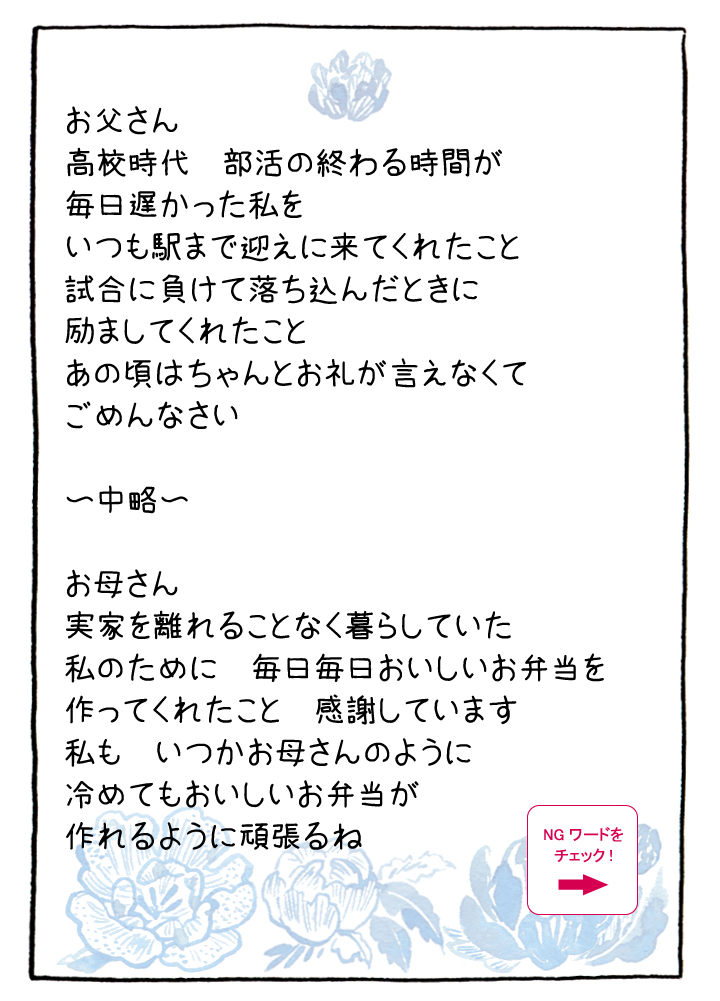 お父さん
高校時代　部活の終わる時間が
毎日遅かった私を
いつも駅まで迎えに来てくれたこと
試合に負けて落ち込んだときに
励ましてくれたこと
あの頃はちゃんとお礼が言えなくて
ごめんなさい
〜中略〜
お母さん
実家を離れることなく暮らしていた
私のために　毎日毎日おいしいお弁当を
作ってくれたこと　感謝しています
私も　いつかお母さんのように
冷めてもおいしいお弁当が
作れるように頑張るね
NGワードを
チェック！